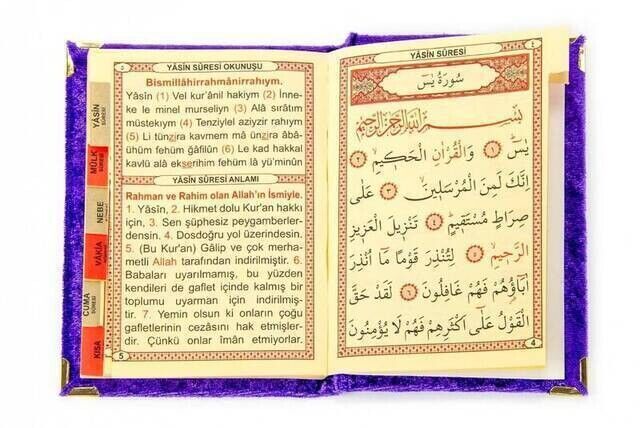 YÂSİN SÛRESİ OKUNUŞU
Bismillâhirrahmânirrahıym.
Yâsîn (1) Vel kur'ânil hakiym (2) İnne-
ke le minel murseliyn (3) Alâ sırâtım
müstekıym (4) Tenziylel aziyzir rahıym
(5) Li tünzira kavmem mâ ünzira âbâ-
ühüm fehüm gâfilûn (6) Le kad hakkal
kavlü alâ ekserihim fehüm lâ yü'minûn
YÂSÎN SÛRESİ ANLAMI
Rahman ve Rahim olan Allah'ın İsmiyle.
1. Yâsîn, 2. Hikmet dolu Kur'an hakkı
için, 3. Sen şüphesiz peygamberler-
densin. 4. Dosdoğru yol üzerindesin.
5. (Bu Kur'an) Gâlip ve çok merha-
metli Allah tarafından indirilmiştir. 6.
Babaları uyarılmamış, bu yüzden
kendileri de gaflet içinde kalmış bir
toplumu uyarman için indirilmiş-
tir. 7. Yemin olsun ki onların çoğu
gafletlerinin cezasını hak etmişler-
dir. Çünkü onlar îmân etmiyorlar.
5
YÂSİN SÛRESİ
٤
سُورَةُ يٰسٓ
بِسْمِ اللّٰهِ الرَّحْمٰنِ الرَّحِيمِ
يٰسٓ ﴿١﴾ وَالْقُرْاٰنِ الْحَكِيمِ ﴿٢﴾
اِنَّكَ لَمِنَ الْمُرْسَلِينَ ﴿٣﴾ عَلٰى
صِرَاطٍ مُسْتَقِيمٍ ﴿٤﴾ تَنْزِيلَ الْعَزِيزِ
الرَّحِيمِ ﴿٥﴾ لِتُنْذِرَ قَوْمًا مَٓا اُنْذِرَ
اٰبَٓاؤُهُمْ فَهُمْ غَافِلُونَ ﴿٦﴾ لَقَدْ حَقَّ
الْقَوْلُ عَلٰٓى اَكْثَرِهِمْ فَهُمْ لَا يُؤْمِنُونَ
4
YÂSİN
SÛRESİ
MÜLK
SÛRESİ
NEBE
VÂKIA
CUMA
SÛRESİ
KISA